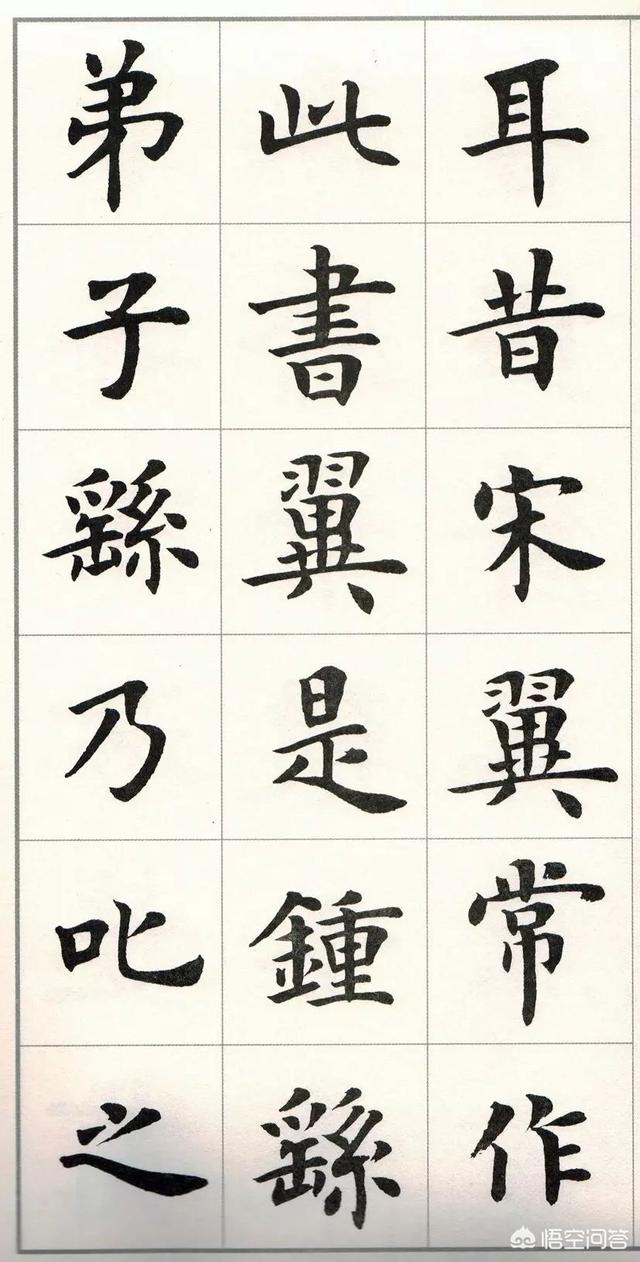 耳昔宋翼常作
此書翼是鍾繇
弟子繇乃叱之
悟空问答